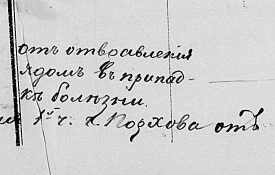 отъ отравленія
ядомъ въ припад-
кѣ болѣзни.
1ой ч. г. Порхова отъ